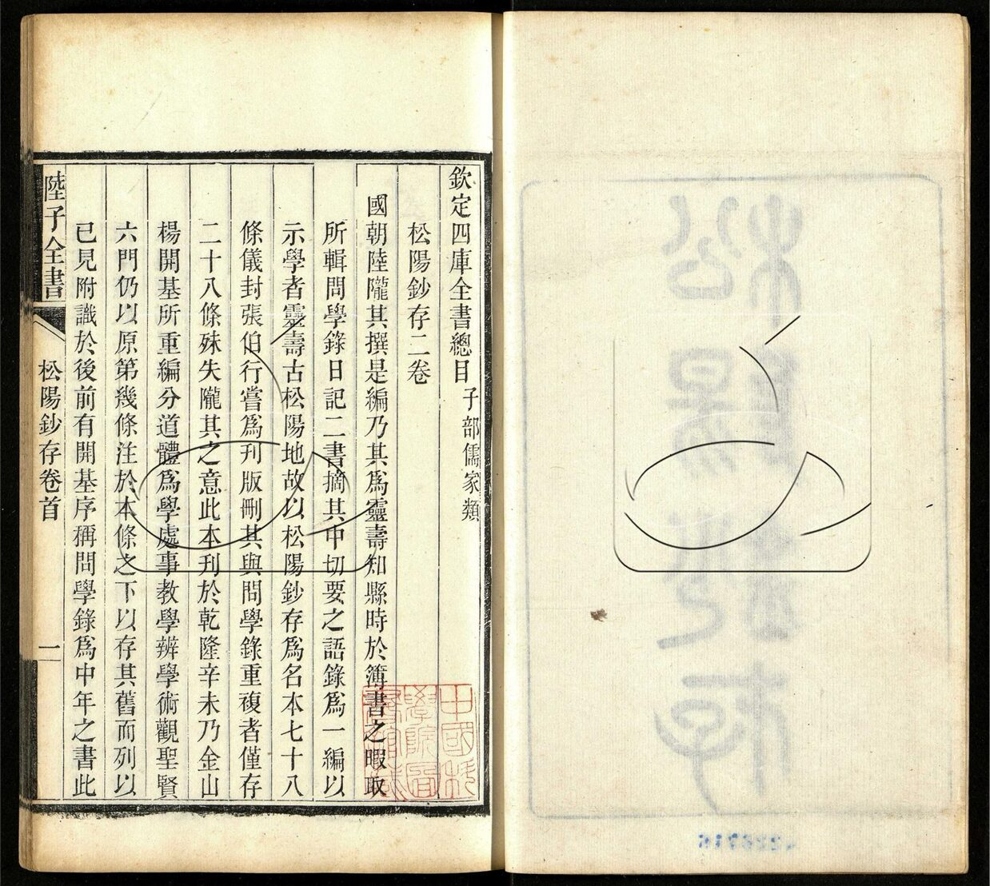 欽定四庫全書總目 子部儒家類
松陽鈔存二卷
國朝陸隴其撰是編乃其爲靈壽知縣時於簿書之暇取
所輯問學錄日記二書摘其中切要之語錄爲一編以
示學者靈壽古松陽地故以松陽鈔存爲名本七十八
條儀封張伯行嘗爲刋版刪其與問學錄重複者僅存
二十八條殊失隴其之意此本刋於乾隆辛未乃金山
楊開基所重編分道體爲學處事教學辨學術觀聖賢
六門仍以原第幾條注於本條之下以存其舊而列以
已見附識於後前有開基序稱問學錄爲中年之書此
陸子全書 松陽鈔存卷首 一